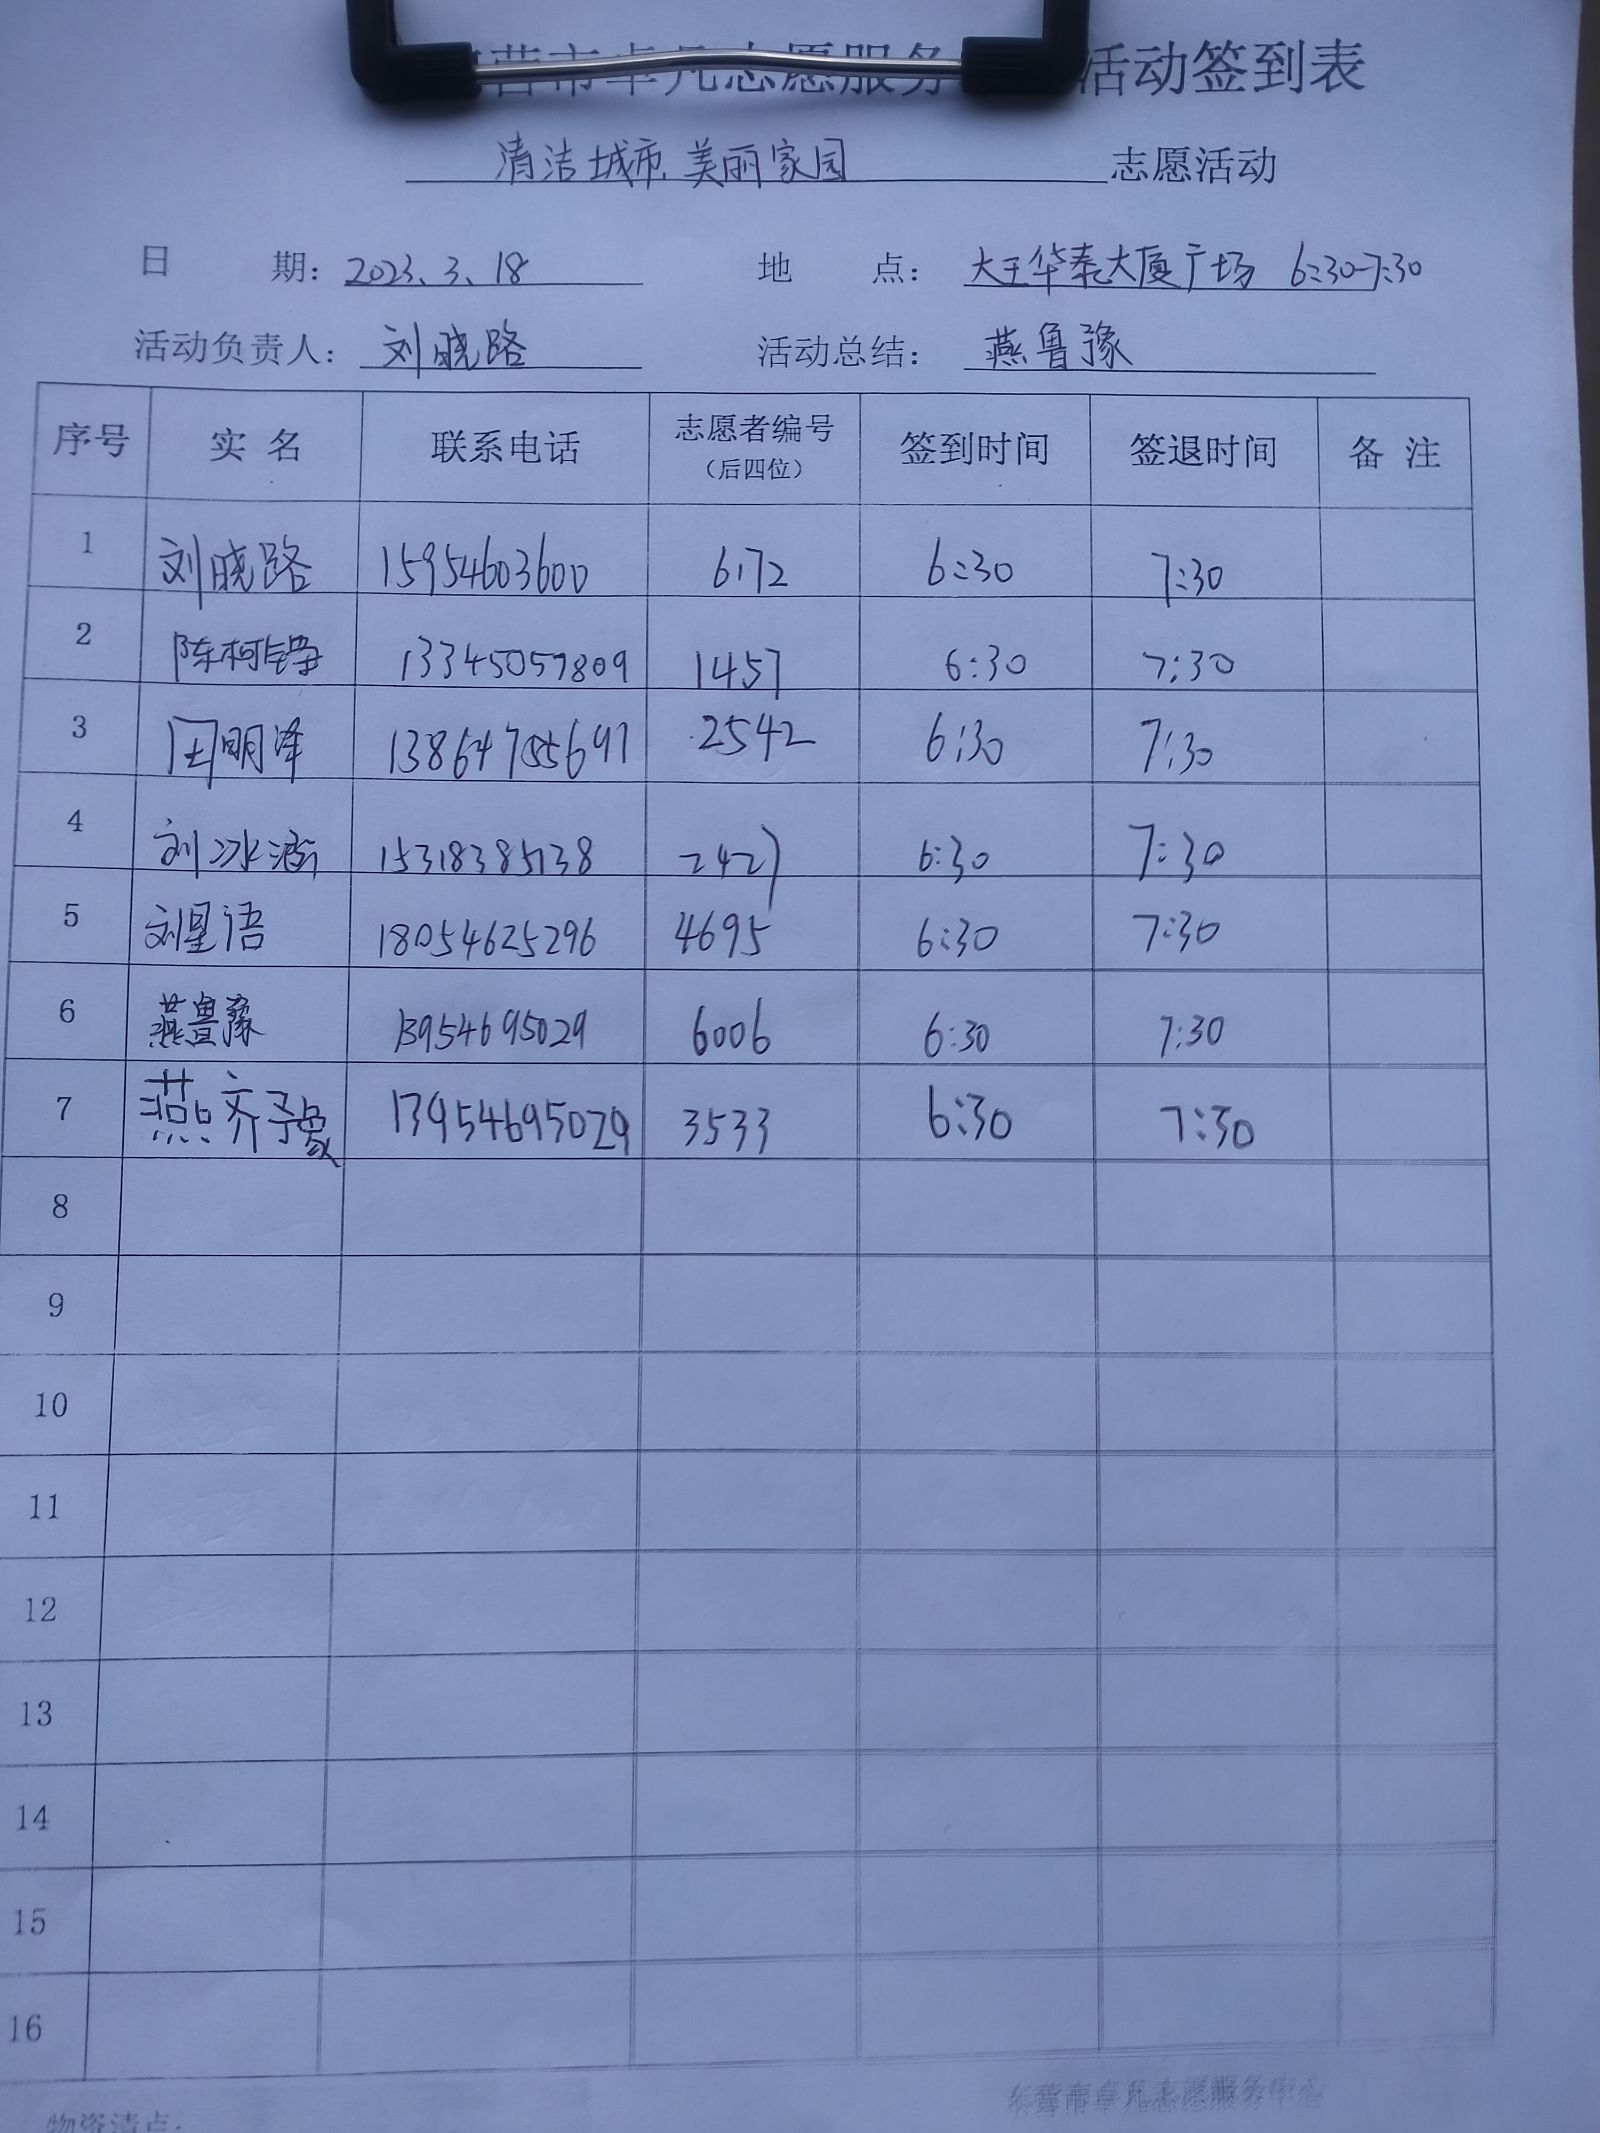 营市卓凡志愿服务 活动签到表
清洁城市 美丽家园 志愿活动
日 期：2023.3.18 地 点：大王华泰大厦广场 6:30-7:30
活动负责人：刘晓路 活动总结：燕鲁豫
序号 实名 联系电话 志愿者编号（后四位） 签到时间 签退时间 备注
1 刘晓路 15954603600 6172 6:30 7:30
2 陈柯铮 13345057809 1457 6:30 7:30
3 田明泽 13864755697 2542 6:30 7:30
4 刘冰涵 15318385738 2427 6:30 7:30
5 刘星语 18054625296 4695 6:30 7:30
6 燕鲁豫 13954695029 6006 6:30 7:30
7 燕齐豫 13954695029 3533 6:30 7:30
8
9
10
11
12
13
14
15
16
东营市卓凡志愿服务中心
物资清点：